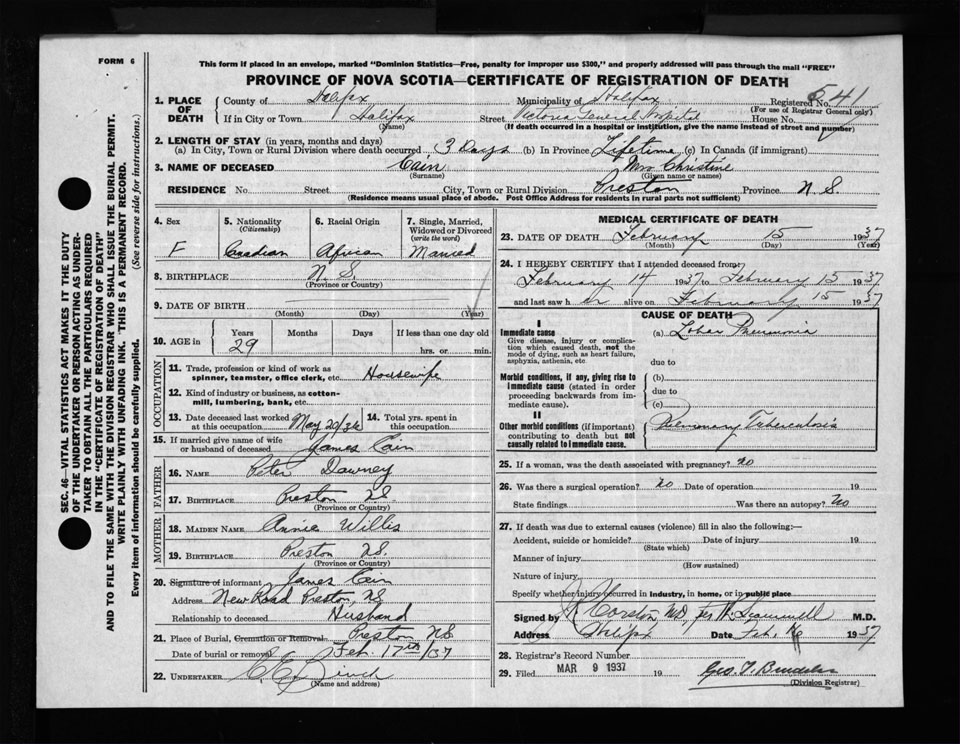 FORM 6
This form if placed in an envelope, marked "Dominion Statistics—Free, penalty for improper use $300," and properly addressed will pass through the mail "FREE"
PROVINCE OF NOVA SCOTIA—CERTIFICATE OF REGISTRATION OF DEATH
SEC. 46—VITAL STATISTICS ACT MAKES IT THE DUTY
OF THE UNDERTAKER OR PERSON ACTING AS UNDER-
TAKER TO OBTAIN ALL THE PARTICULARS REQUIRED
IN THE "CERTIFICATE OF REGISTRATION OF DEATH"
AND TO FILE THE SAME WITH THE DIVISION REGISTRAR WHO SHALL ISSUE THE BURIAL PERMIT.
WRITE PLAINLY WITH UNFADING INK. THIS IS A PERMANENT RECORD.
Every item of information should be carefully supplied. (See reverse side for instructions.)
1. PLACE OF DEATH County of Halifax Municipality of Halifax Registered No. 541
(For use of Registrar General only)
If in City or Town Halifax Street Victoria General Hospital House No.
(Name) (If death occurred in a hospital or institution, give the name instead of street and number)
2. LENGTH OF STAY (in years, months and days)
(a) In City, Town or Rural Division where death occurred 3 Days (b) In Province Lifetime (c) In Canada (if immigrant)
3. NAME OF DECEASED Cain Mrs Christine
(Surname) (Given name or names)
RESIDENCE No. Street City, Town or Rural Division Preston Province N.S.
(Residence means usual place of abode. Post Office Address for residents in rural parts not sufficient)
4. Sex 5. Nationality (Citizenship) 6. Racial Origin 7. Single, Married, Widowed or Divorced (write the word)
F Canadian African Married
8. BIRTHPLACE N.S.
(Province or Country)
9. DATE OF BIRTH
(Month) (Day) (Year)
10. AGE in Years Months Days If less than one day old
29 hrs. or min.
OCCUPATION
11. Trade, profession or kind of work as spinner, teamster, office clerk, etc. Housewife
12. Kind of industry or business, as cotton-mill, lumbering, bank, etc.
13. Date deceased last worked at this occupation May 20/36 14. Total yrs. spent in this occupation
15. If married give name of wife or husband of deceased James Cain
FATHER
16. NAME Peter Downey
17. BIRTHPLACE Preston N.S.
(Province or Country)
MOTHER
18. MAIDEN NAME Annie Willis
19. BIRTHPLACE Preston N.S.
(Province or Country)
20. Signature of informant James Cain
Address New Road Preston, N.S
Relationship to deceased Husband
21. Place of Burial, Cremation or Removal Preston N.S
Date of burial or removal Feb. 17th/37
22. UNDERTAKER
(Name and address)
MEDICAL CERTIFICATE OF DEATH
23. DATE OF DEATH February 15 1937
(Month) (Day) (Year)
24. I HEREBY CERTIFY that I attended deceased from:
February 14 1937 to February 15 1937
and last saw her alive on February 15 1937
CAUSE OF DEATH
I
Immediate cause (a) Lobar Pneumonia
Give disease, injury or complication which caused death, not the mode of dying, such as heart failure, asphyxia, asthenia, etc.
due to
Morbid conditions, if any, giving rise to immediate cause (stated in order proceeding backwards from immediate cause). (b)
due to
(c)
II
Other morbid conditions (if important) contributing to death but not causally related to immediate cause. Pulmonary Tuberculosis
25. If a woman, was the death associated with pregnancy? No
26. Was there a surgical operation? No Date of operation 19
State findings Was there an autopsy? No
27. If death was due to external causes (violence) fill in also the following:—
Accident, suicide or homicide? Date of injury 19
(State which)
Manner of injury
(How sustained)
Nature of injury
Specify whether injury occurred in industry, in home, or in public place
Signed by Corston, MD, per Scammell M.D.
Address Halifax Date Feb. 1937
28. Registrar's Record Number
29. Filed MAR 9 1937 19
(Division Registrar)